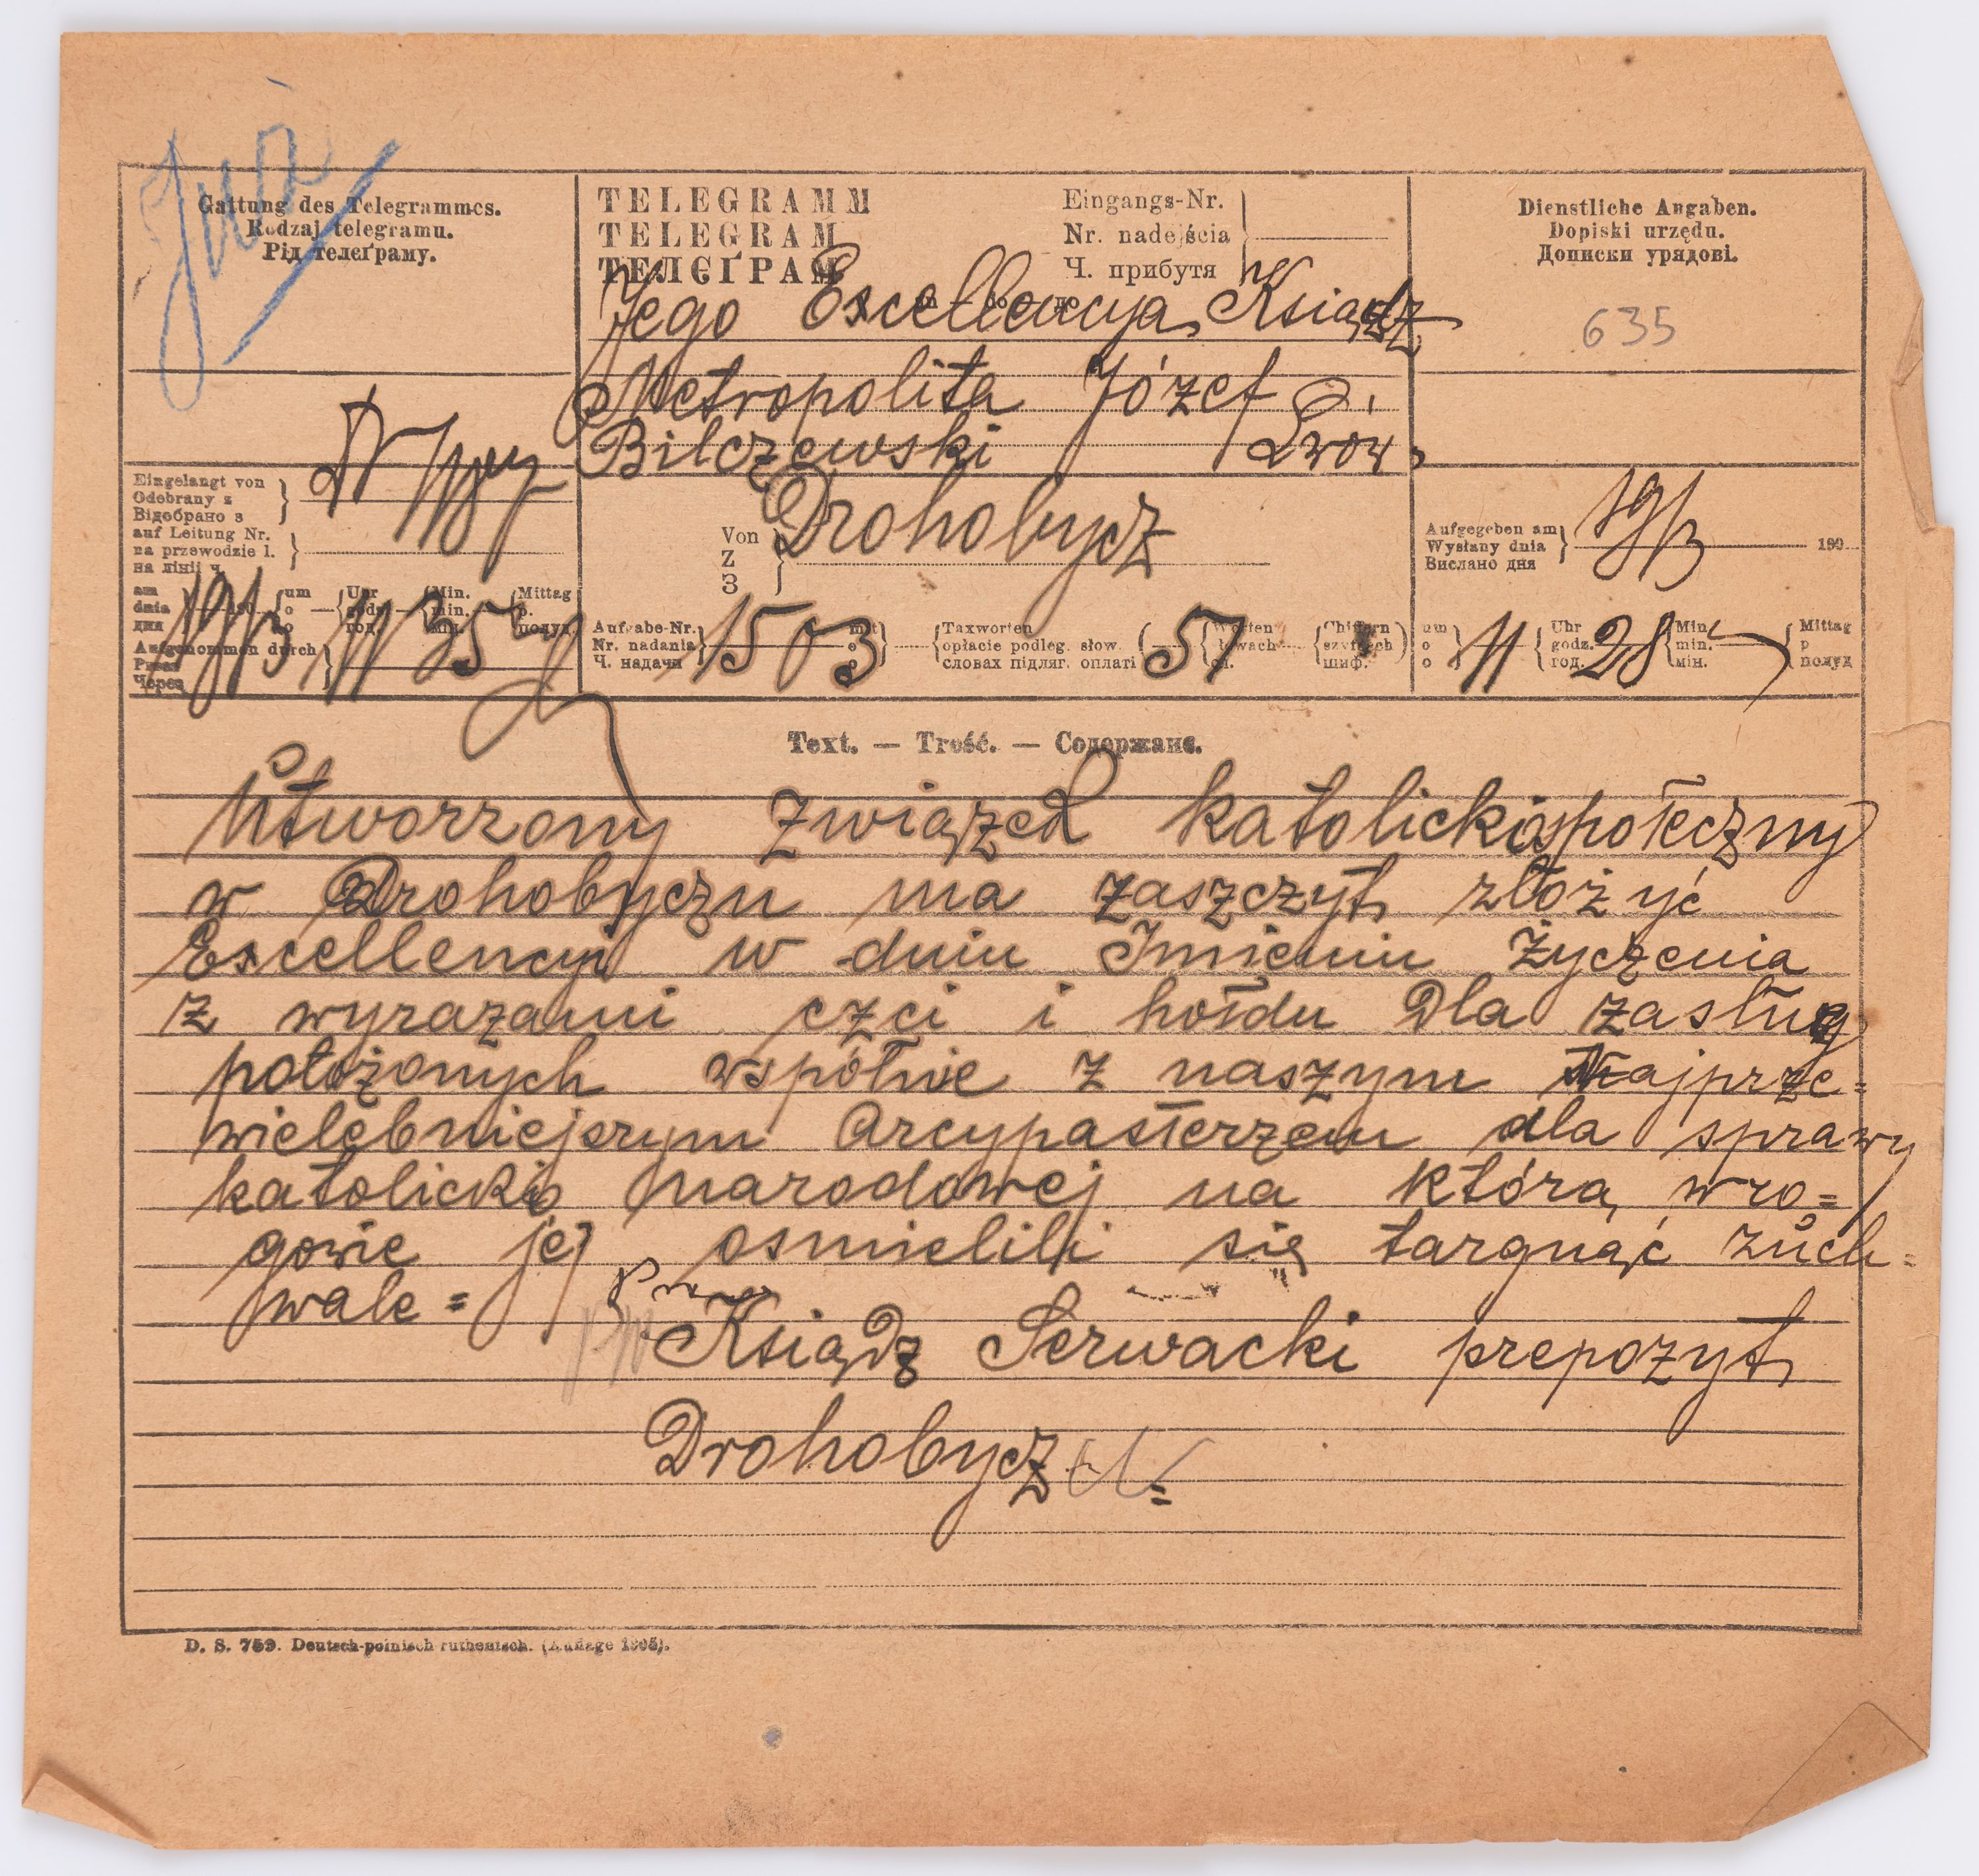 Gattung des Telegrammes.
Rodzaj telegramu.
Рід телеґраму.
TELEGRAMM
TELEGRAM
ТЕЛЄҐРАМ
Eingangs-Nr.
Nr. nadejścia
Ч. прибутя
Dienstliche Angaben.
Dopiski urzędu.
Дописки урядові.
635
an — do — до
Jego Excellencya Ksiądz
Metropolita Józef
Bilczewski Lwow
Eingelangt von
Odebrany z
Відобрано з
auf Leitung Nr.
na przewodzie l.
на лінії ч.
Von
Z
З
Drohobycz
Aufgegeben am
Wysłany dnia
Вислано дня
19/3
190
am
dnia
дня
19/3
190
um
o
о
11
Uhr
godz.
год.
35
Min.
min.
мін.
Mittag
p.
полуд.
Aufgenommen durch
Przez
Через
Aufgabe-Nr.
Nr. nadania
Ч. надачи
1503
mit
o
о
Taxworten
opłacie podleg. słow.
словах підляг. оплаті
57
Worten
słowach
сл.
Chiffern
szyfrach
шиф.
um
o
о
11
Uhr
godz.
год.
28
Min.
min.
мін.
Mittag
p
полуд
Text. — Treść. — Содержанє.
Utworzony związek katolickospołeczny
w Drohobyczu ma zaszczyt złożyć
Excellencyi w dniu Imieniu życzenia
z wyrazami czci i hołdu Dla zasług
położonych wspólnie z naszym Najprze=
wielebniejszym Arcypasterzem dla sprawy
katolicko narodowej na którą wro=
gowie jej osmielili się targnąć zuch=
wale =
Ksiądz Serwacki prepozyt
Drohobycz =
D. S. 759. Deutsch-polnisch-ruthenisch. (Auflage 1905).